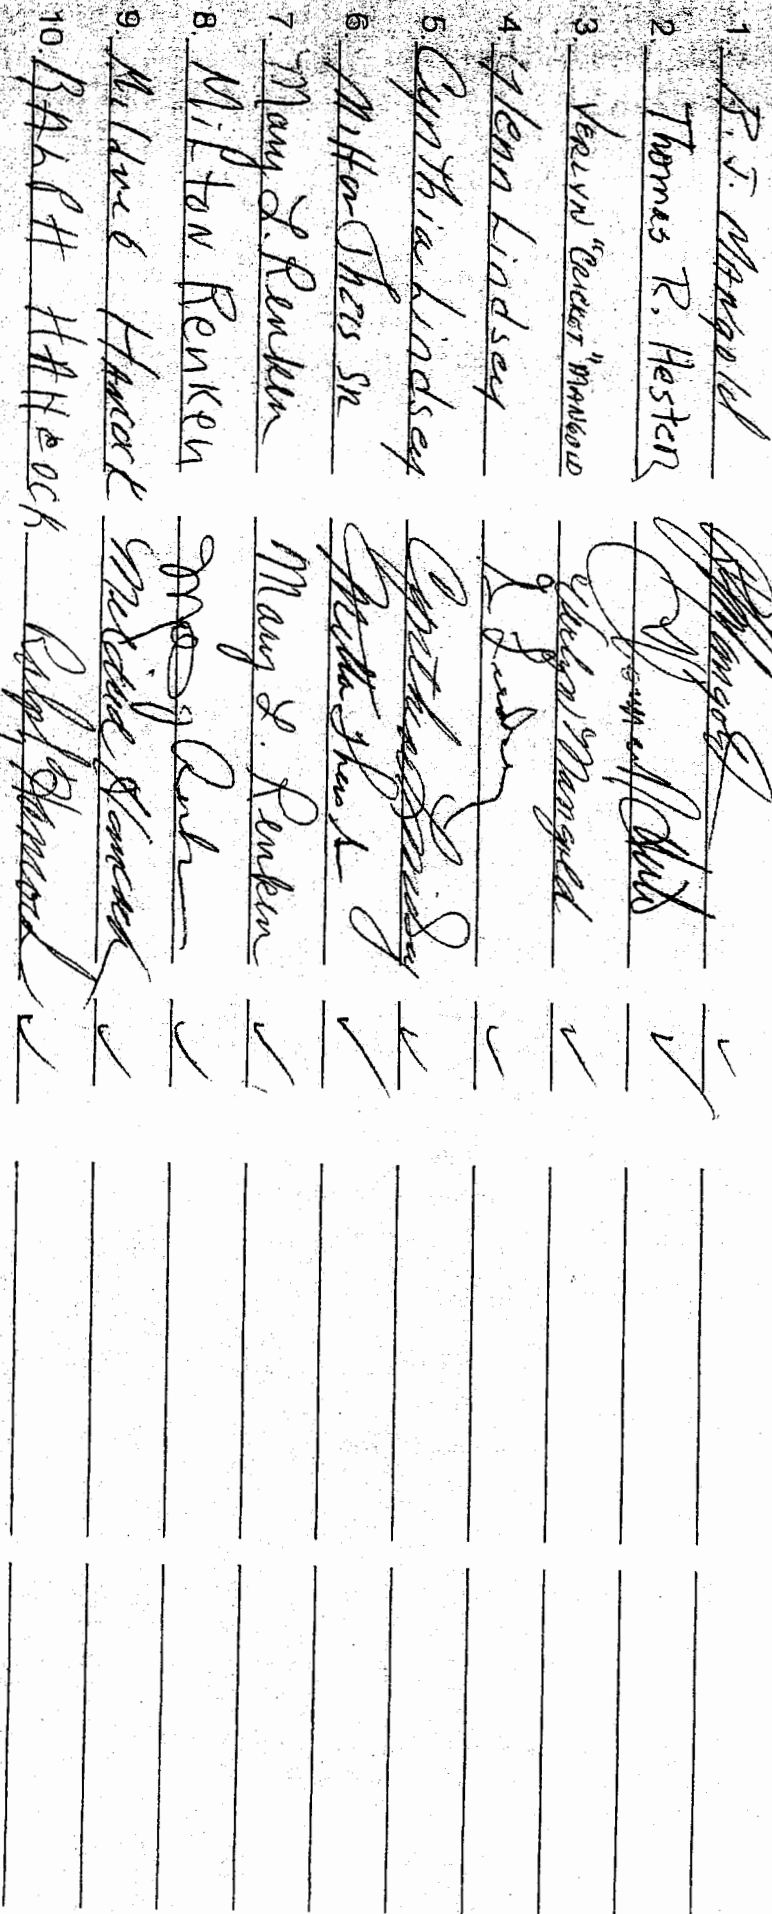 1. B. J. Mangold ✓
2. Thomas R. Hester ✓
3. VERLYN "CRICKET" MANGOLD Verlyn Mangold ✓
4. Glenn Lindsey ✓
5. Cynthia Lindsey Cynthia Lindsey ✓
6. Milton Theis SR ✓
7. Mary L. Renken Mary L. Renken ✓
8. Milton Renken ✓
9. Mildred Hancock Mildred Hancock ✓
10. RALPH HANCOCK Ralph Hancock ✓